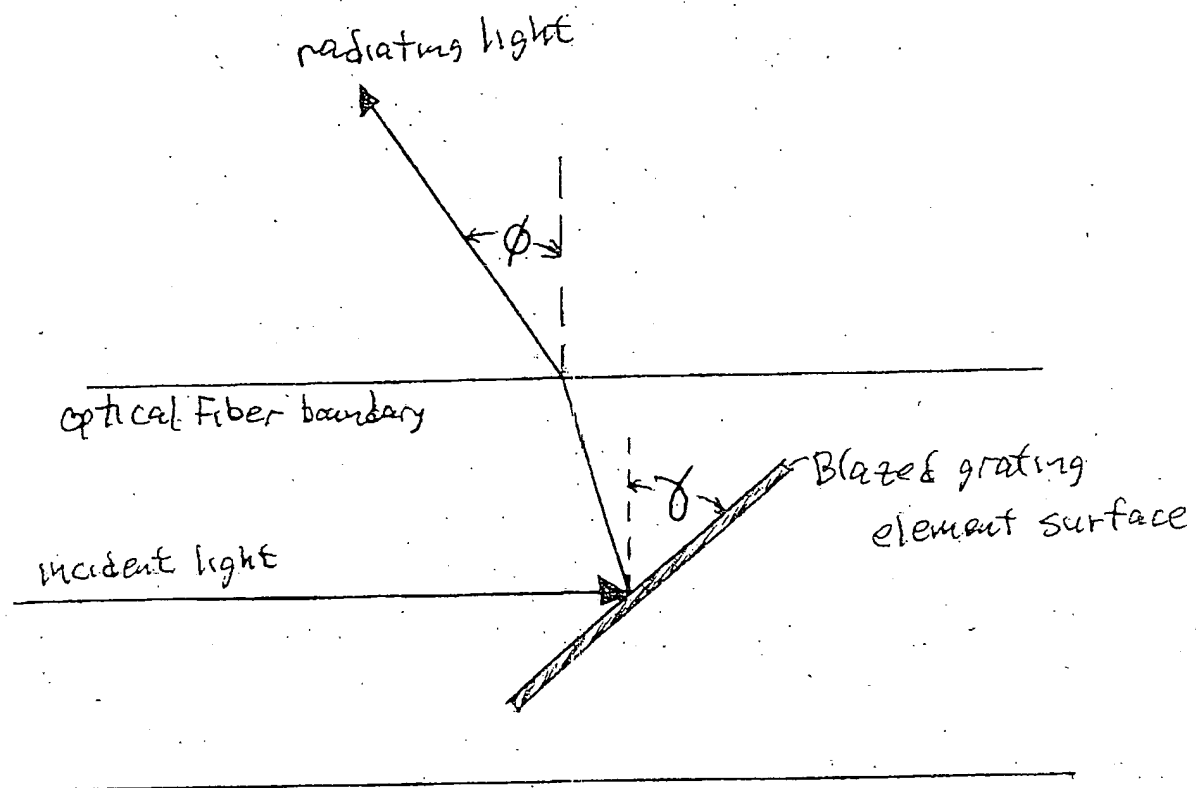 radiating light
ϕ
optical Fiber boundary
γ
Blazed grating
element surface
incident light